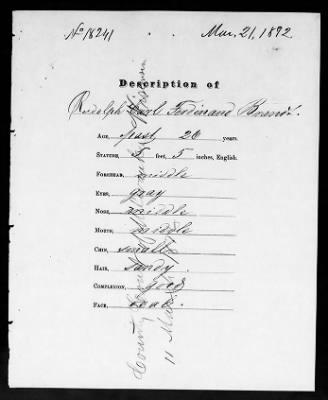 No 18241 Mar. 21, 1892
Description of
Rudolph Carl Ferdinand Brandt.
AGE, past 26 years.
STATURE, 5 feet, 5 inches, English.
FOREHEAD, middle
EYES, gray
NOSE, middle
MOUTH, middle
CHIN, small
HAIR, sandy.
COMPLEXION, good
FACE, oval.
County
11 Mar